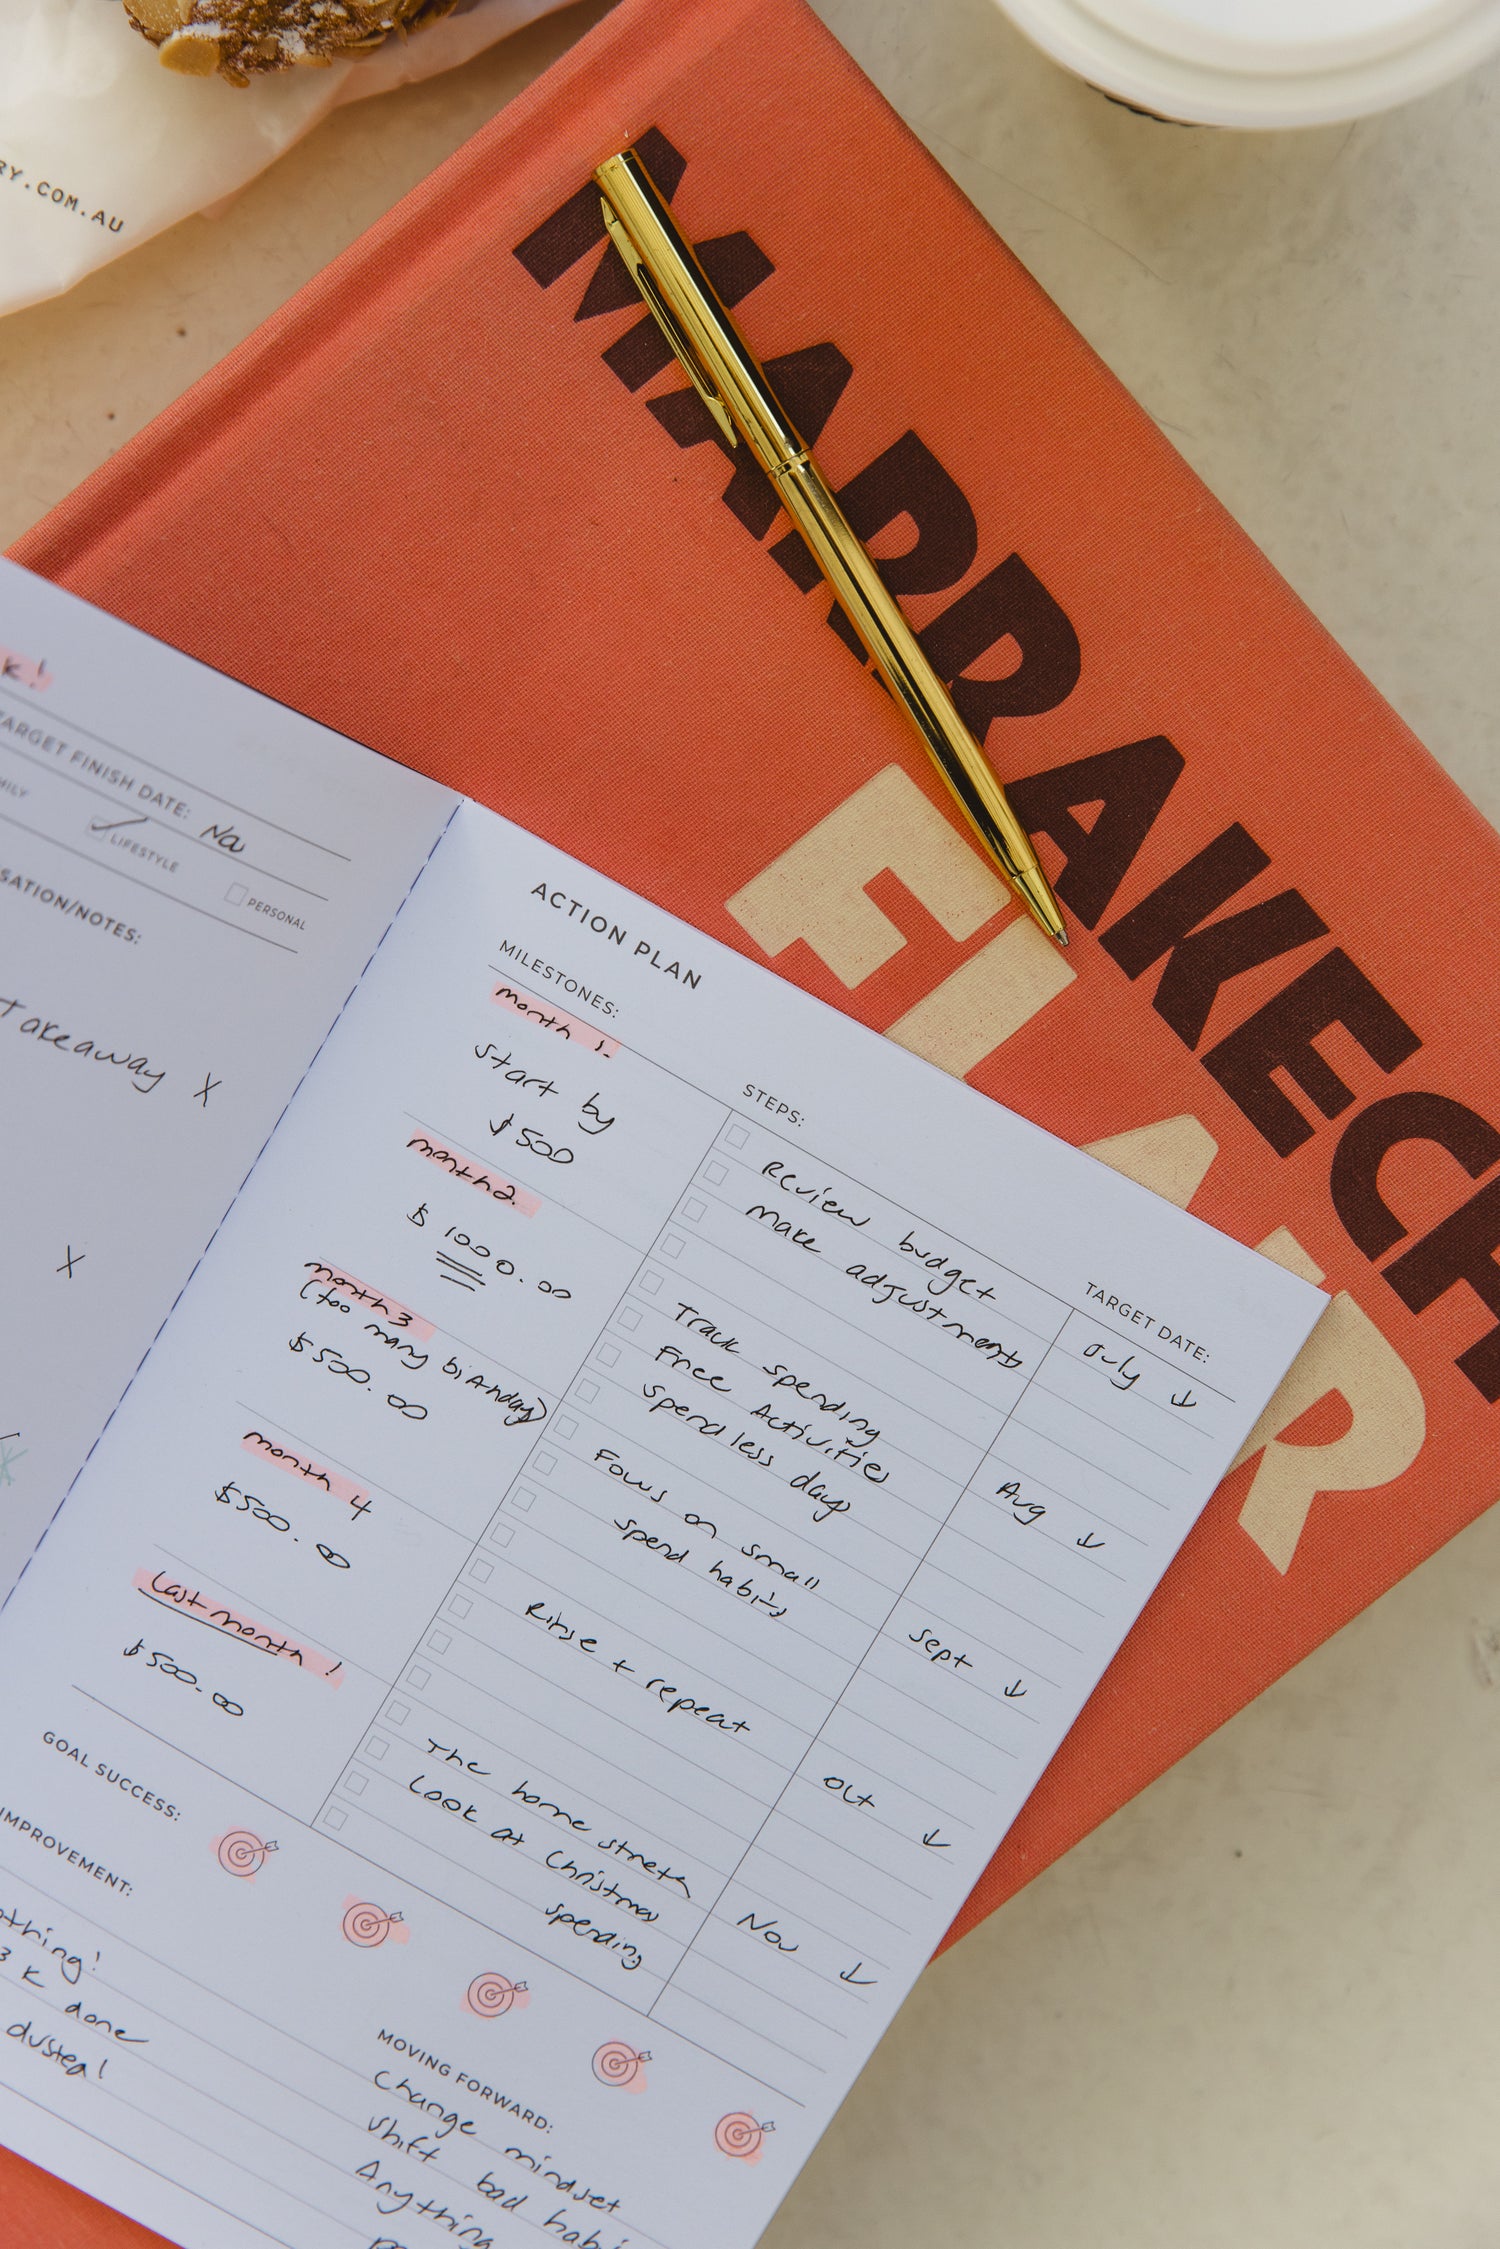 RY.COM.AU
MARRAKECH
FLAIR
k!
TARGET FINISH DATE: Nov
MILY
LIFESTYLE
PERSONAL
SATION/NOTES:
Takeaway X
X
ACTION PLAN
MILESTONES:
month 1.
Start by
$500
month 2.
$ 1000.00
month 3
(too many birthdays)
$500.00
month 4
$500.00
Last month!
$500.00
STEPS:
Review budget
Make adjustments
Track spending
Free Activities
Spend less days
Focus on small
spend habits
Rinse + repeat
The home stretch
Look at Christmas
spending
TARGET DATE:
July ↓
Aug ↓
Sept ↓
Oct ↓
Nov ↓
GOAL SUCCESS:
IMPROVEMENT:
othing!
3 K done
dusted!
MOVING FORWARD:
Change mindset
Shift bad habi
Anything